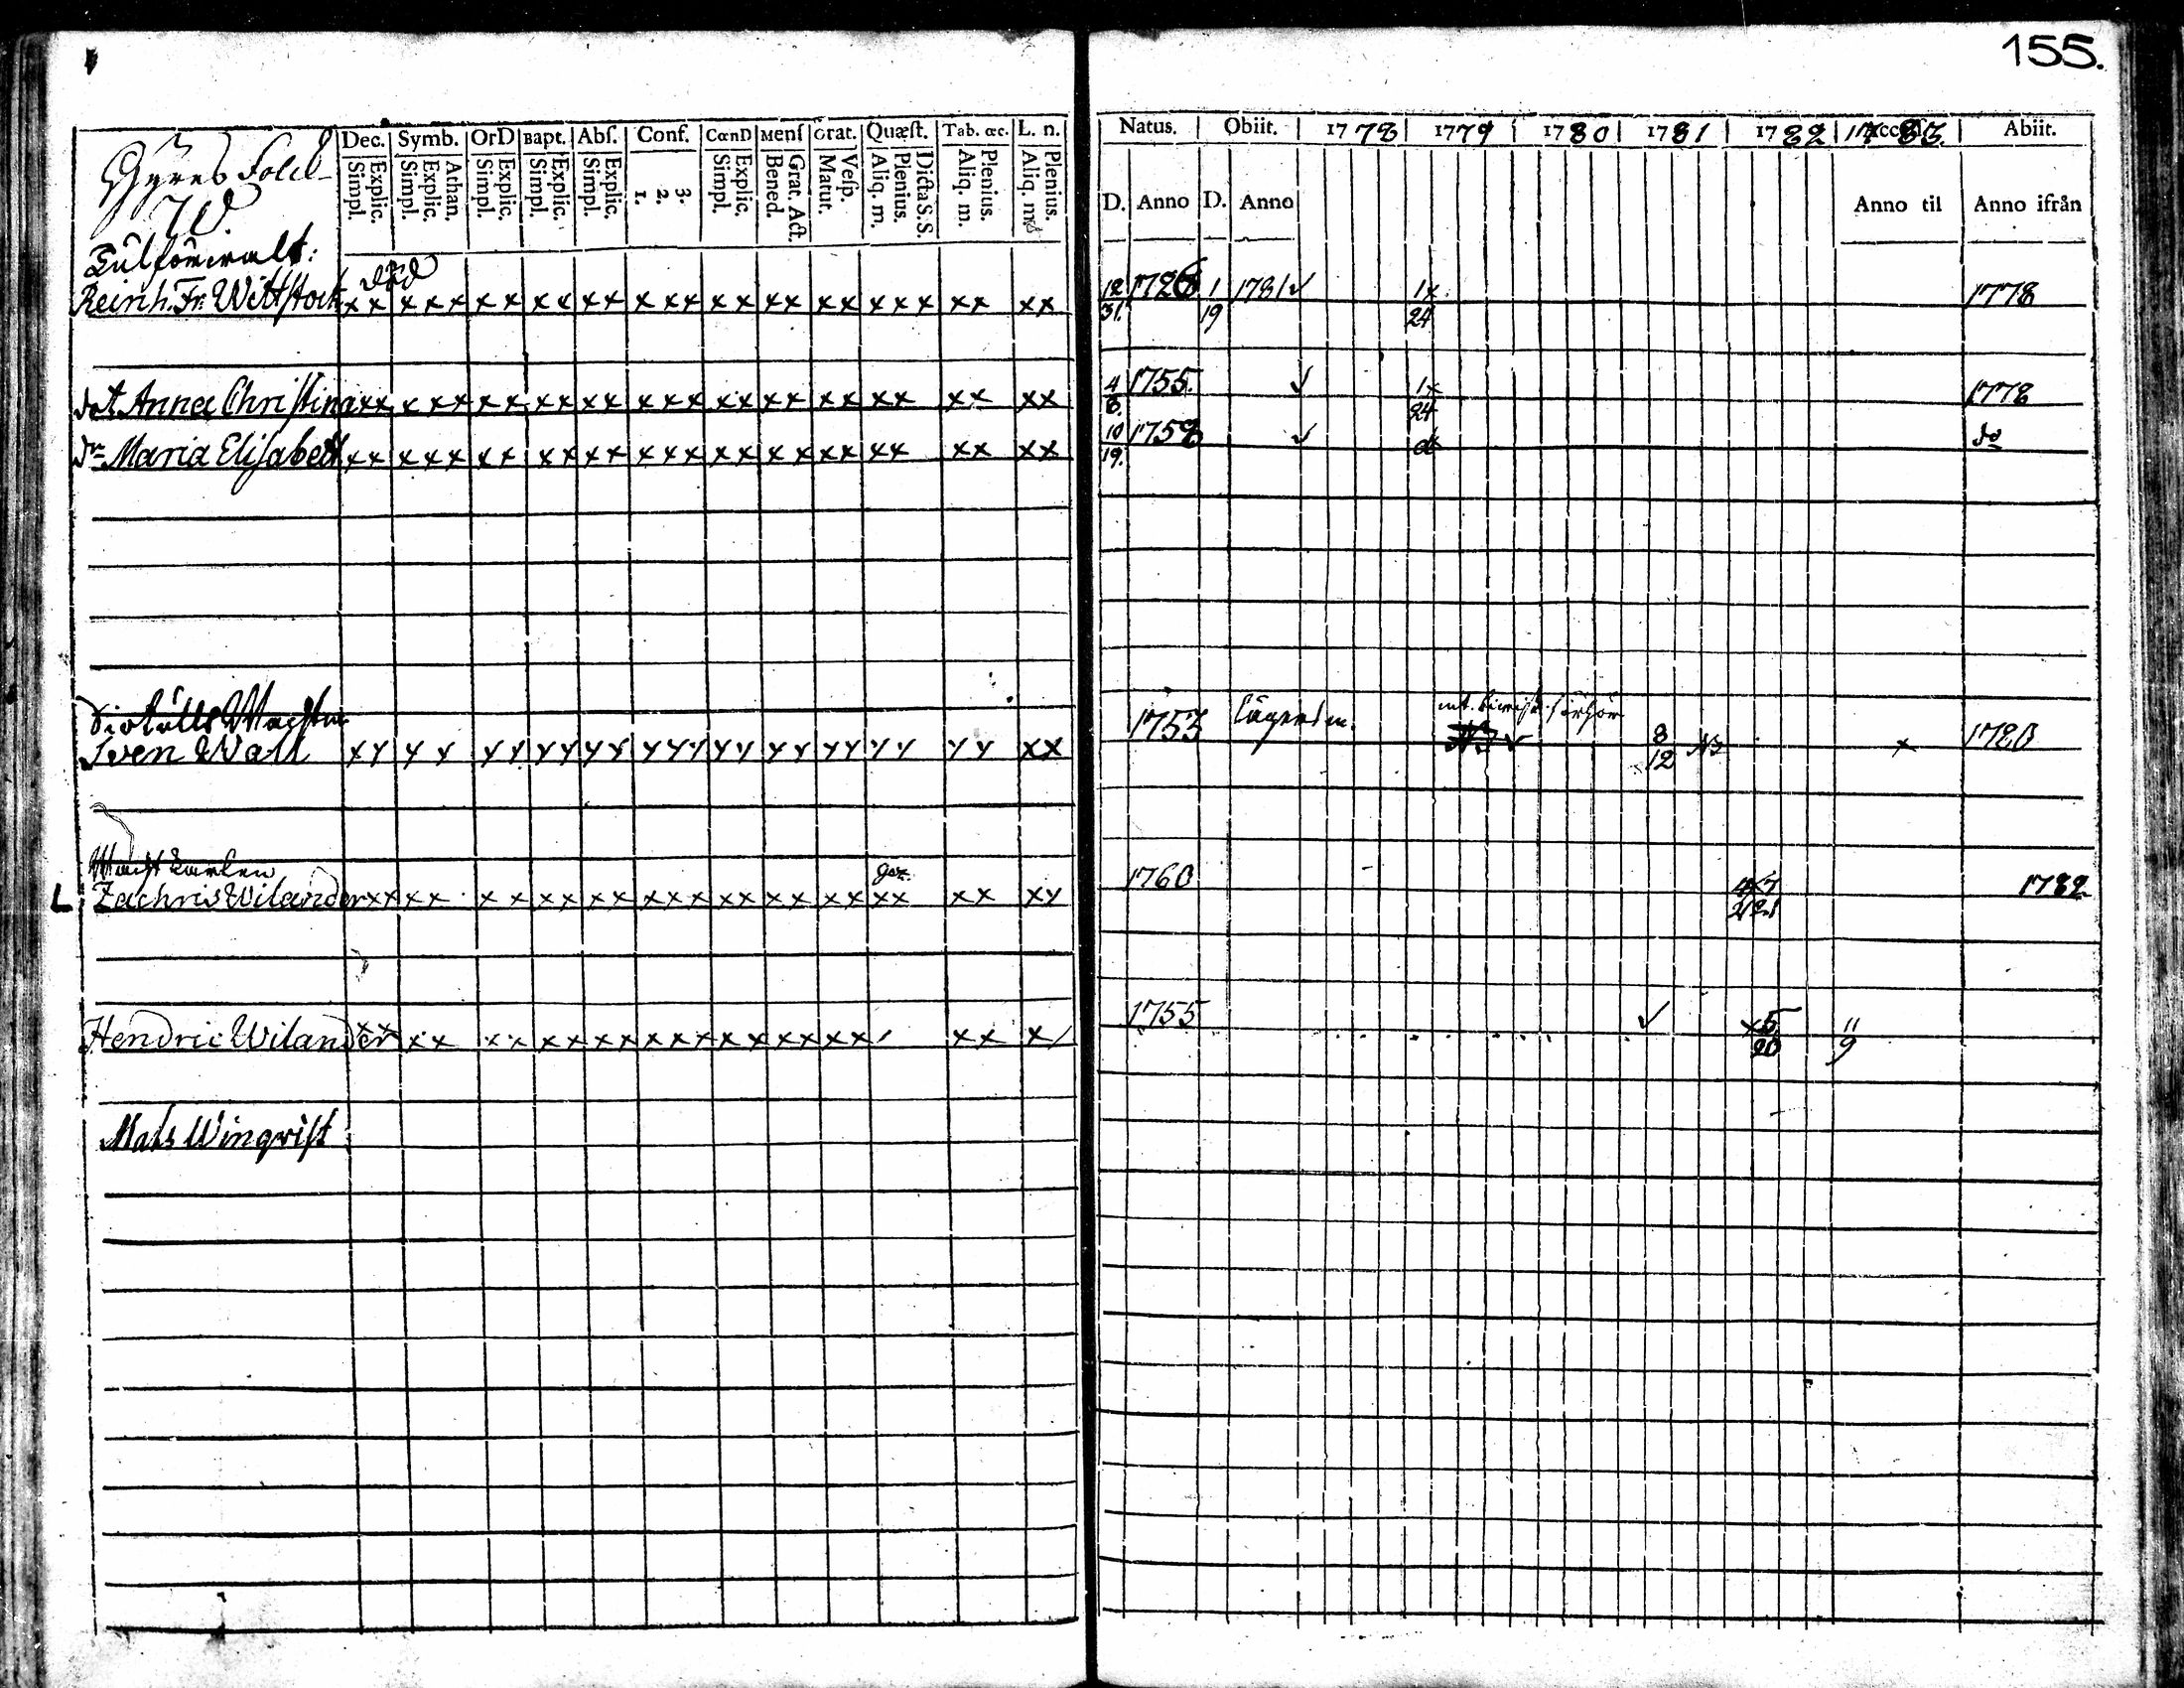 155.
Dec. Symb. OrD Bapt. Abſ. Conf. CœnD Menſ Grat. Quæſt. Tab. œc. L. n.
Simpl. Explic. Simpl. Explic. Athan. Simpl. Explic. Simpl. Explic. Simpl. Explic. 1. 2. 3. Simpl. Explic. Bened. Grat. Act. Matut. Veſp. Aliq. m. Plenius. Dicta S. S. Aliq. m. Plenius. Aliq. m. Plenius.
Natus. Obiit. 1778 1779 1780 1781 1782 1783. Abiit.
D. Anno D. Anno Anno til Anno ifrån
död
Reinh. Fr. Wittstock xx xxx xx xx xx xxx xx xx xx xxx xx xx 12/31. 1726 1/19 1781 ✓ 1x/24 1778
dot Anna Christina xx xxx xx xx xx xxx xx xx xx xx xx xx 4/8. 1755. ✓ 1x/24 1778
Maria Elisabeth xx xxx xx xx xx xxx xx xx xx xx xx xx 10/19. 1758 ✓ do
Sven Wall xx xx xx xx xx xxx xx xx xx xx xx xx 1753 8/12 x 1780
L Zachris Wilander xx xx xx xx xx xxx xx xx xx xx xx xx 1760 1782
Hendric Wilander xx xx xx xx xx xxx xx xx xx / xx x/ 1755 ✓ x5/20 11/9
Mats Winqvist